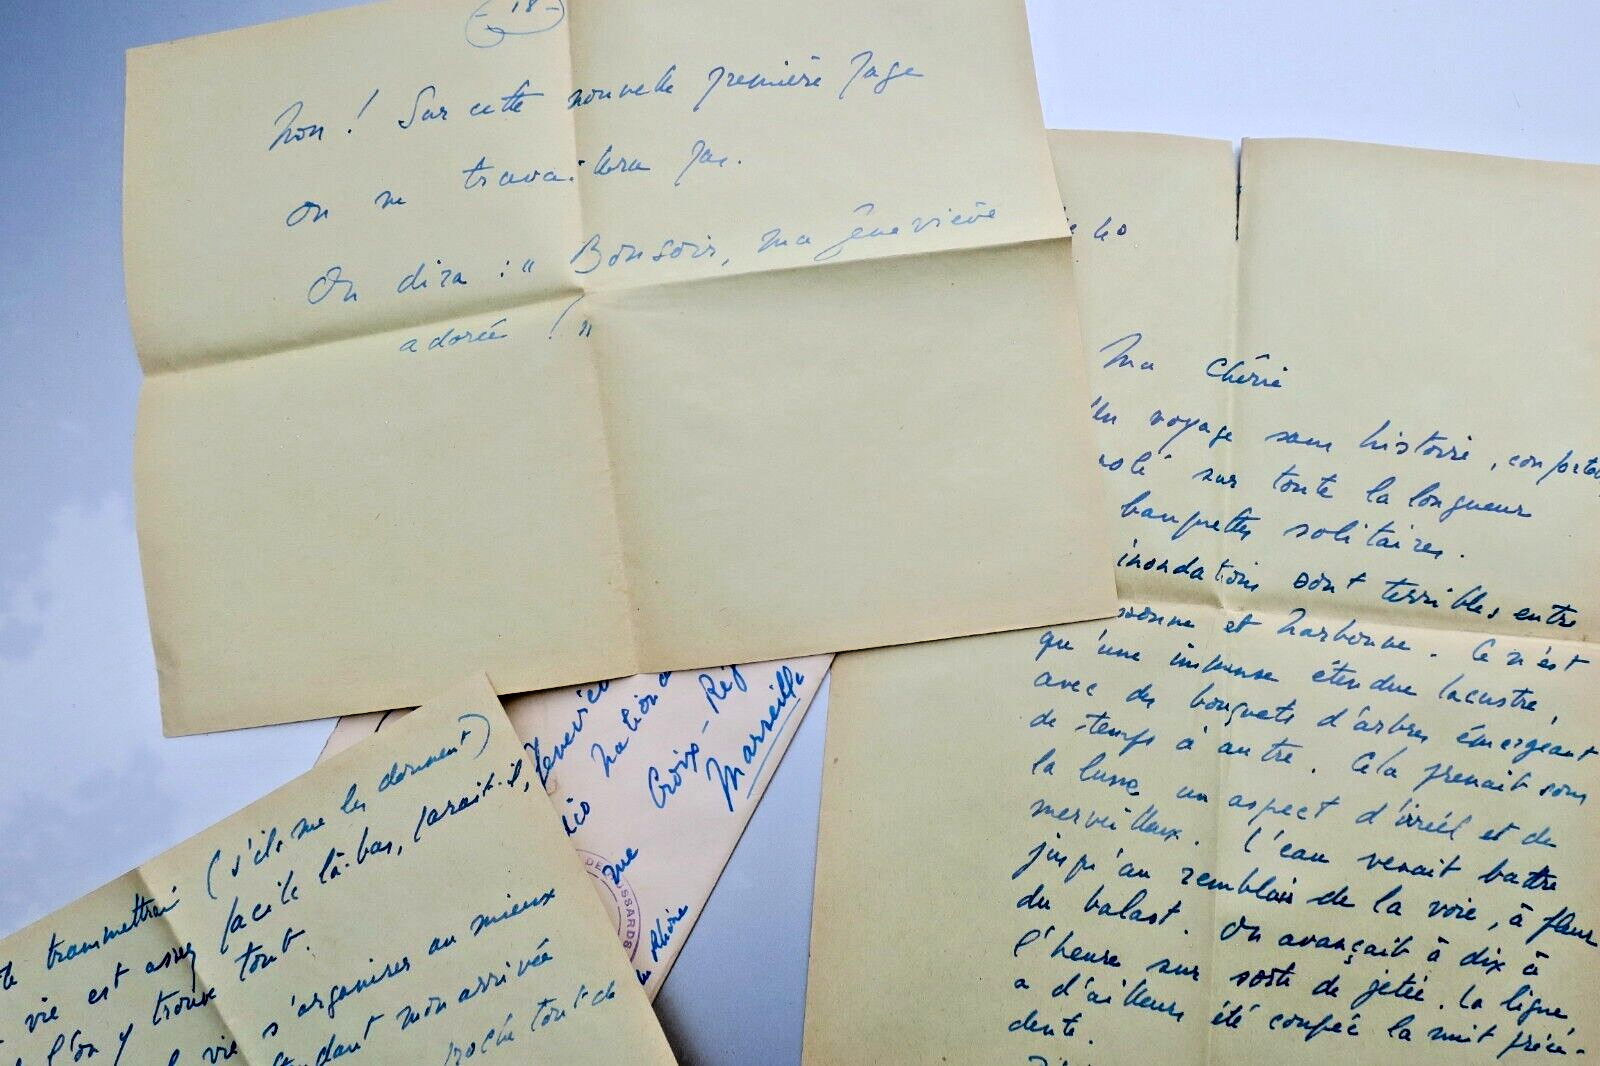 - 18 -
Non ! Sur cette nouvelle première page
on ne travaillera pas.
On dira : " Bonsoir, ma Geneviève
adorée ! "
40
Ma Chérie
Un voyage sans histoire, confortab
sur toute la longueur
banquettes solitaires.
inondations sont terribles entre
sonne et Narbonne. Ce n'est
qu'une immense étendue lacustre,
avec des bouquets d'arbres émergeant
de temps à autre. Cela prenait sous
la lune un aspect d'irréel et de
merveilleux. L'eau venait battre
jusqu'au remblais de la voie, à fleur
du balast. On avançait à dix à
l'heure sur sorte de jetée. La ligne
a d'ailleurs été coupée la nuit précé-
dente.
Geneviè
nationa
rue Croix-Rég
Marseille
du Rhône
DE
USSARDS
te transmettrai (s'ils me les donnent)
vie est assez facile là-bas, paraît-il,
l'on y trouve tout.
vie s'organiser au mieux
dant mon arrivée
roche tout de